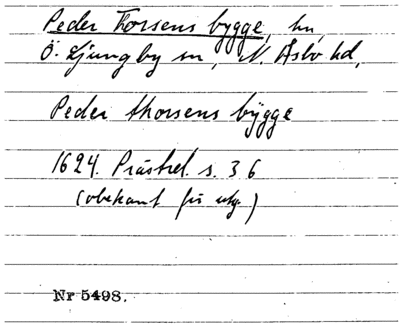 Peder Thorsens bygge, hn,
Ö. Ljungby sn, N. Åsbo hd,
Peder thorsens bÿgge
1624. Prästrel. s. 36
(obekant för utg.)
Nr 5498.